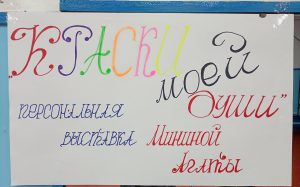 "КРАСКИ
моей
души"
ПЕРСОНАЛЬНАЯ
ВЫСТАВКА
Мининой
Агаты